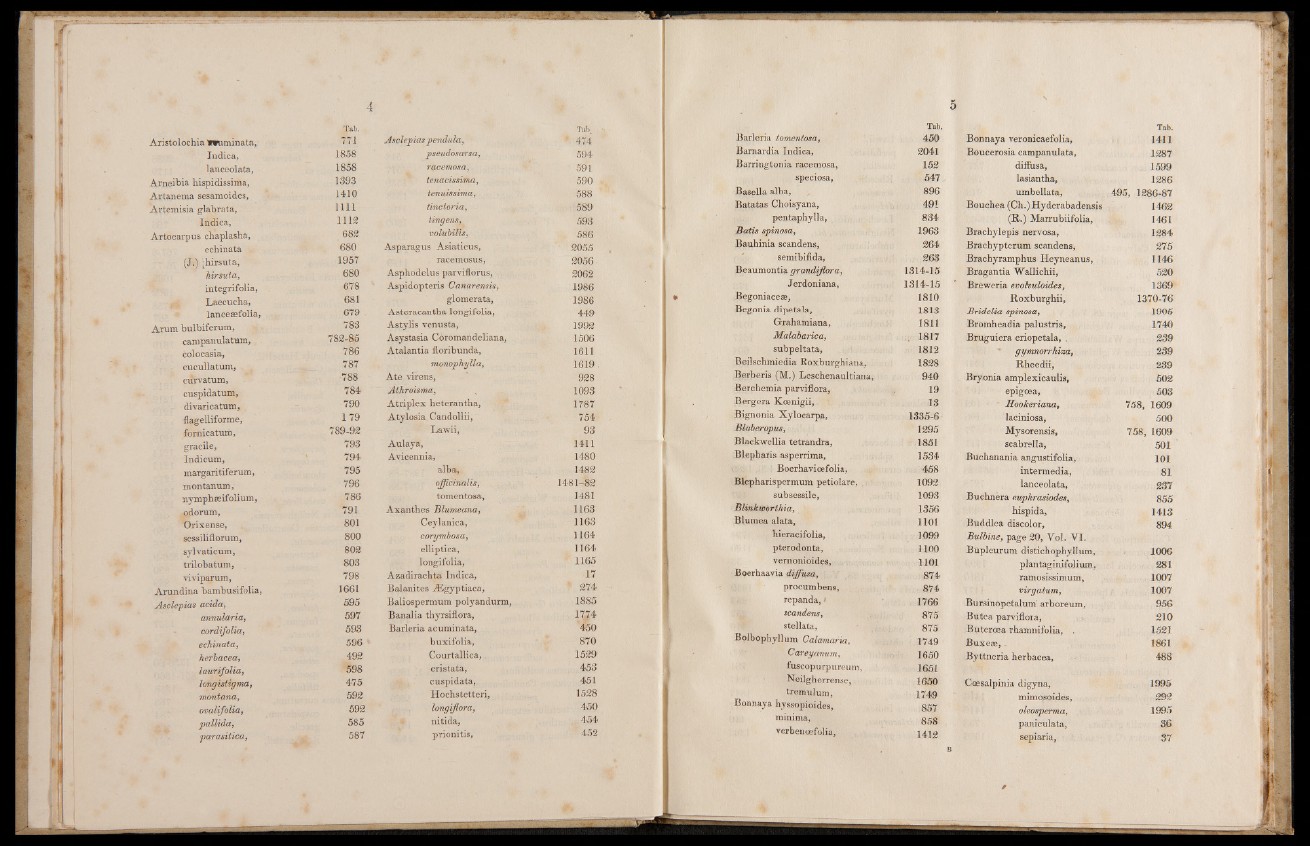 4
Tab.
Aristolochia acuminata, 771
Indica, 1858
lanceolata, 1858
Arneibia hispidissima, 1393
Artanema sesamoides, 1410
Artemisia glabrata, 1111
Indica, 1112
Artocarpus chaplasha, 682
echinata 680
(J.) hirsuta, 1957
hirsuta, 680
integrifolia, 678
Laecucha, 681
lanceæfolia, 679
Arum bulbiferum, 783
campanulatum, 782-85
colocasia, 786
cucullatum, 787
curvatum, 788
cuspidatum, 784
divaricatum, 790
flagelliforme, 1 79
fornicatum, 789-92
gracile, 793
Indicum, 794
margaritiferum, 795
montanum, 796
nymphæifolium, 786
odorum, 791
Orixense, 801
sessiliflorum, 800
sylvaticum, 802
trilobatum, 803
viviparum, 798
Arundina bambusifolia, 1661
Asclepias acida, 595
annularia, 597
cordifolia, 593
echinata, 596
herbacea, 492
laurifolia, 598
longistigma, 475
montana, 592
ovalifolia, 592
pallida, 585
parasitica, 587
Tab.
Asclepias pendula, 474
pseudosarsa, 594
racemosa, 591
tenacissima, 590
tenuissima, 588
tinctoria, 589
tingens, 593
volubilis, 586
Asparagus Asiaticus, 2055
racemosus, 2056
Asphodelus parviflorus, 2062
Aspidopteris Canarensis, 1986
glomerata, 1986
Asteracantha longifolia, 449
Astylis venusta, 1992
Asystasia Coromandeliana, 1506
Atalantia floribunda, 1611
monophylla, 1619
Ate virens, 928
Athroisma, 1093
Atriplex heterantha, 1787
Atylosia Candollii, 754
Lawii, 93
Aulaya, 1411
Avicennia, 1480
alba, 1482
officinalis, 1481-82
tomentosa, 1481
Axanthes Blumeana, 1163
Ceylanica, 1163
corymbosa, 1164
elliptica, 1164
longifolia, 1165
Azadirachta Indica, 17
Balanites Ægyptiaca, 274
Baliospermum polyandurm, 1885
Banalia thyrsiflora, 1774
Barleria acuminata, 450
buxifolia, 870
Courtallica, 1529
cristata, 453
cuspidata, 451
Hochstetteri, 1528
longiflora, 450
nitida, 454
prionitis, 452
5
Tab.
Barleria tomentosa, 450
Barnardia Indica, 2041
Barringtonia racemosa, 152
speciosa, 547
Basella alba, 896
Batatas Choisyana, 491
pentaphylla, 834
Batis spinosa, 1963
Bauhinia scandens, 264
semibifida, 263
Beaumontia grandiflora, 1314-15
Jerdoniana, 1314-15
Begoniaceæ, 1810
Begonia dipetala, 1813
Grahamiana, 1811
Malabarica, 1817
subpeltata, 1812
Beilschmiedia Roxburghiana, 1828
Berberis (M.) Leschenaultiana, 940
Berchemia parviflora, 19
Bergera Kœnigii, 13
Bignonia Xylocarpa, 1335-6
Blaberopus, 1295
Blackwellia tetrandra, 1851
Blepharis asperrima, 1534
Boerhaviœfolia, 458
Blepharispermum petiolare, 1092
subsessile, 1093
Blinkworthia, 1356
Blumea alata, 1101
hieracifolia, 1099
pterodonta, 1100
vernonioides, 1101
Boerhaavia diffusa, 874
procumbens, 874
repanda, 1766
scandens, 875
stellata, 875
Bolbophyllum Calamaria, 1749
Careyanum, 1650
fuscopurpureum, 1651
Neilgherrense, 1650
tremulum, 1749
Bonnaya hyssopioides, 857
minima, 858
verbenœfolia, 1412
Tab.
Bonnaya veronicaefolia, 1411
Boucerosia campanulata, 1287
diffusa, 1599
lasiantha, 1286
umbellata, 495, 1286-87
Bouchea (Ch.) Hyderabadensis 1462
(R.) Marrubiifolia, 1461
Brachylepis nervosa, 1284
Brachypterum scandens, 275
Brachyramphus Heyneanus, 1146
Bragantia Wallichii, 520
Breweria evolvuloides, 1369
Roxburghii, 1370-76
Bridelia spinosa, 1905
Bromheadia palustris, 1740
Bruguiera eriopetala, 239
gymnorrhiza, 239
Rheedii, 239
Bryonia amplexicaulis, 502
epigœa, 503
Hookeriana, 758, 1609
laciniosa, 500
Mysorensis, 758, 1609
scabrella, 501
Buchanania angustifolia, 101
intermedia, 81
lanceolata, 237
Buchnera euphrasiodes, 855
hispida, 1413
Buddlea discolor, 894
Bulbine, page 20, Vol. VI.
Bupleurum distichophyllum, 1006
plantaginifolium, 281
ramosissimum, 1007
virgatum, 1007
Bursinopetalum arboreum, 956
Butea parviflora, 210
Buterœa rhamnifolia, 1521
Buxeæ, 1861
Byttneria herbacea, 488
Cœsalpinia digyna, 1995
mimosoides, 292
oleosperma, 1995
paniculata, 36
sepiaria, 37
B